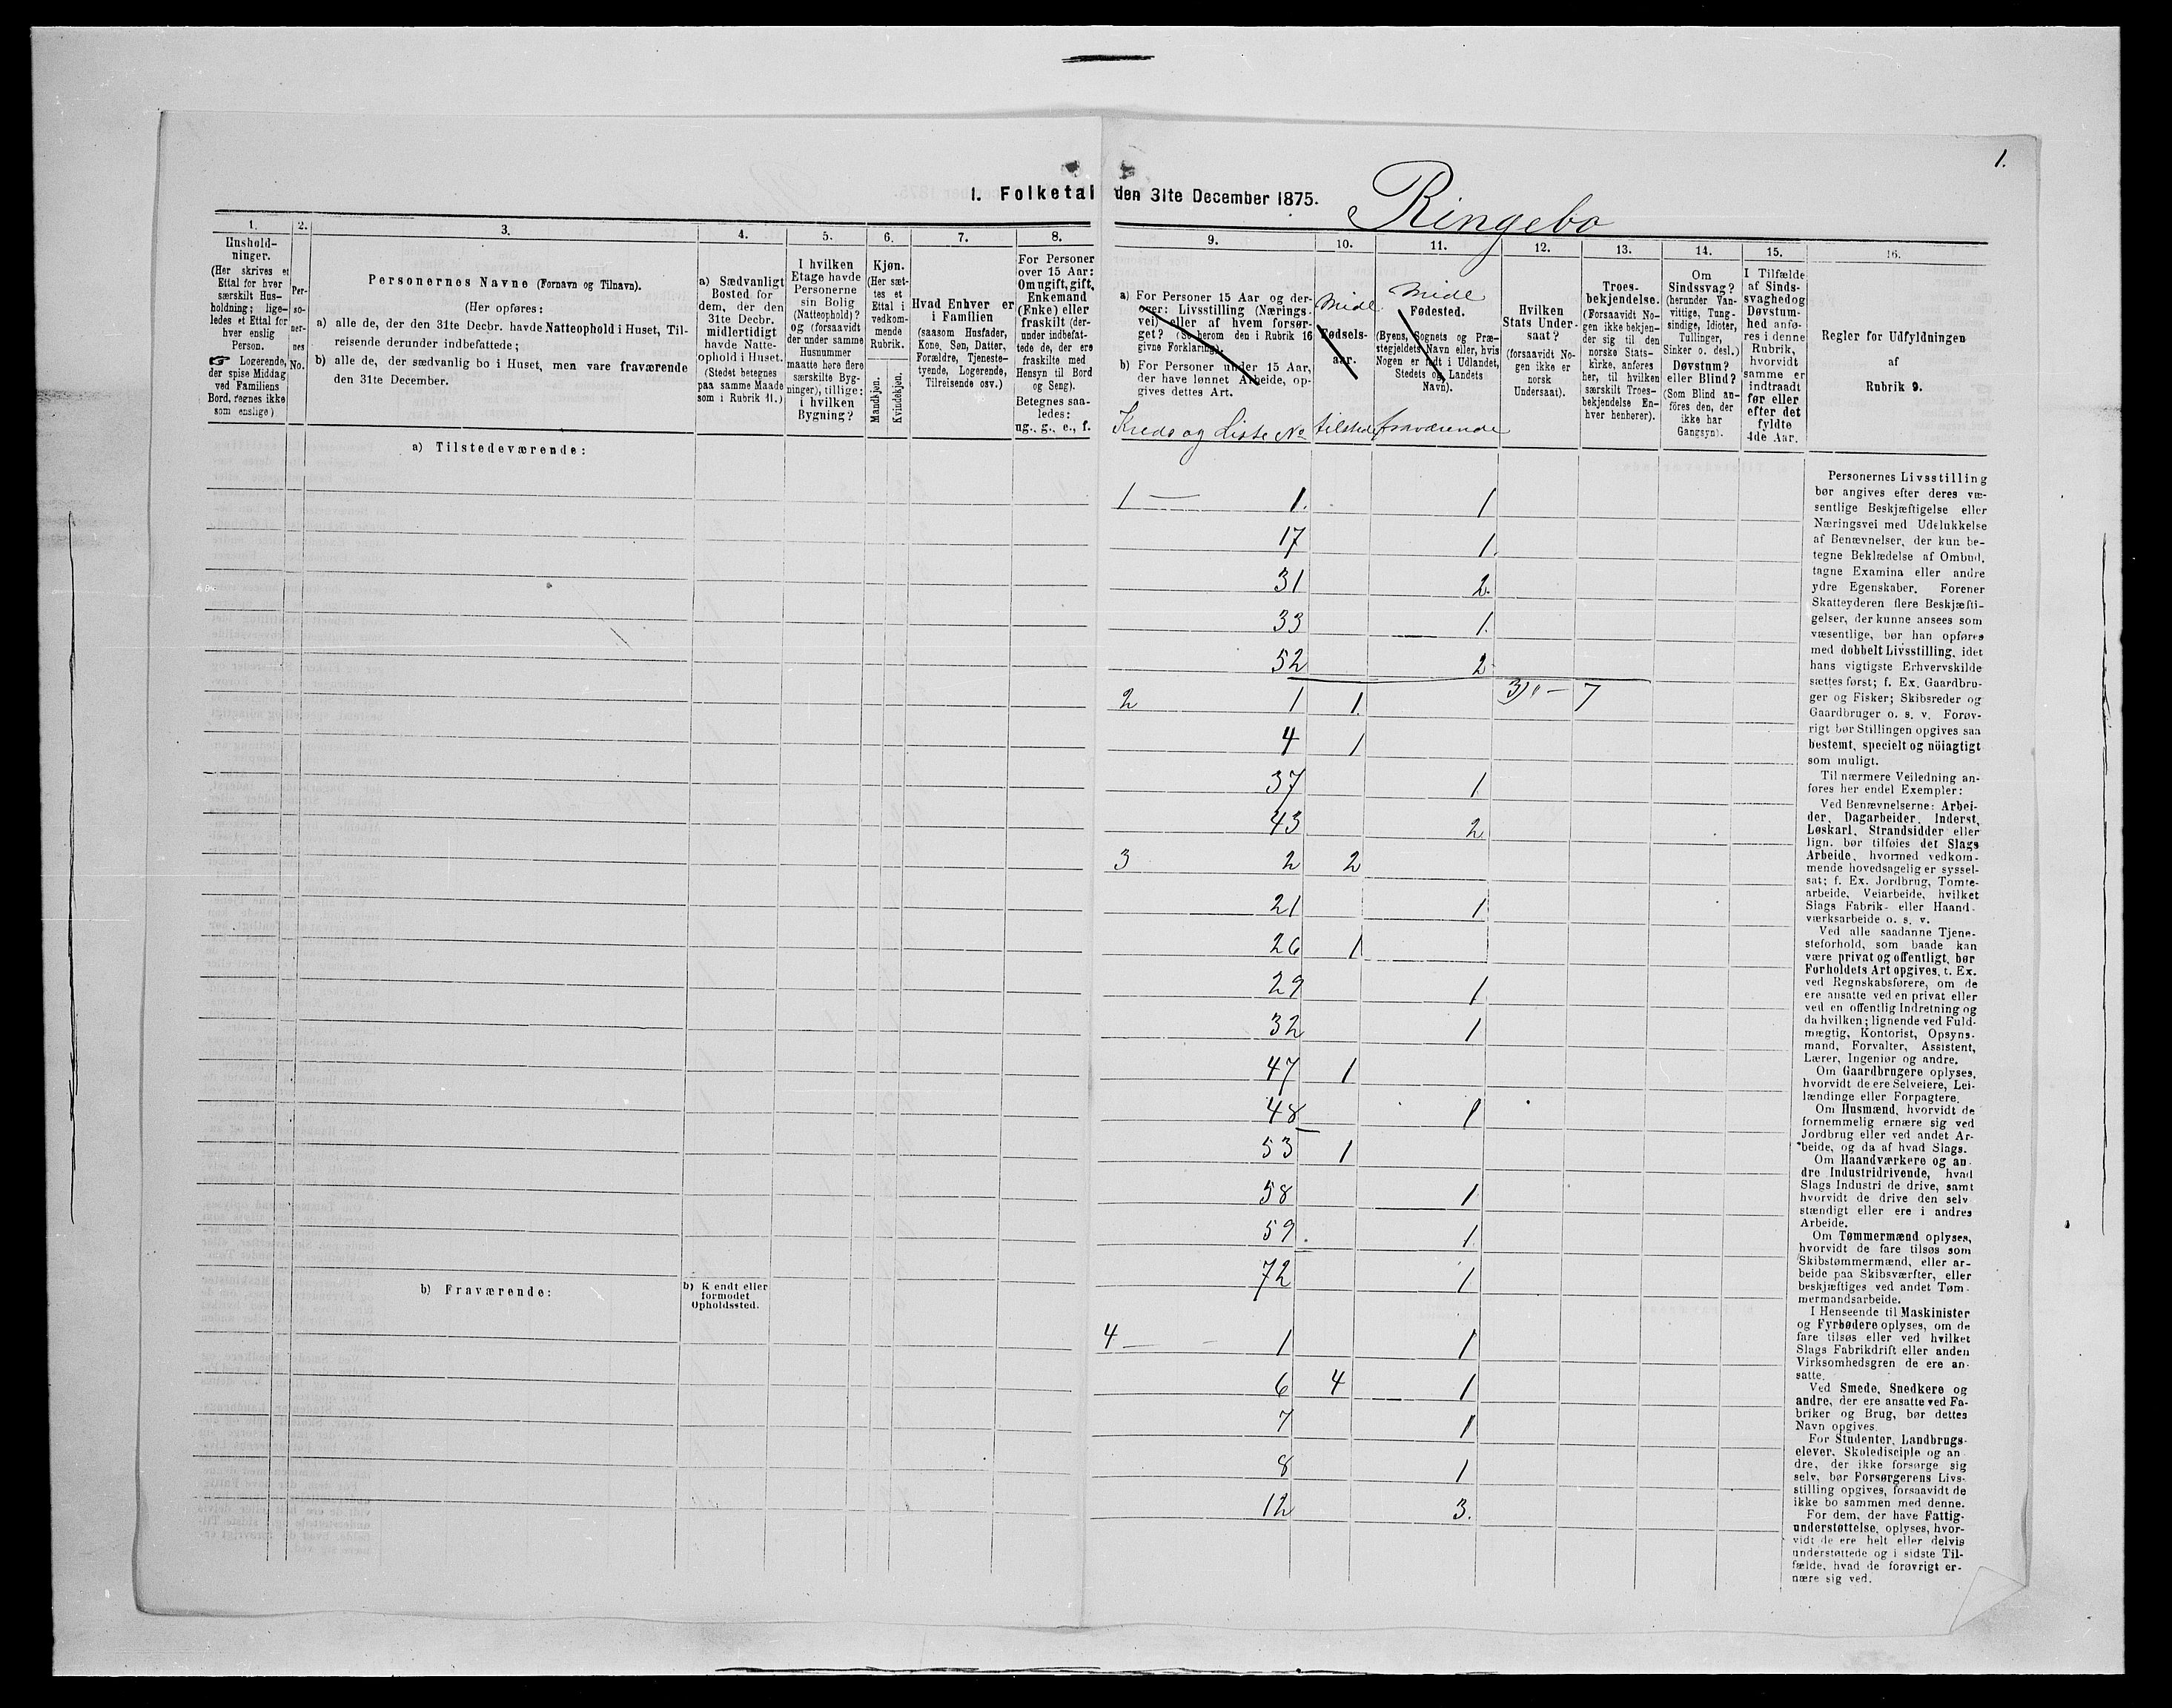 1.
1. Folketal den 31te December 1875.
Ringebo
1.
Hushold-
ninger.
(Her skrives et
Ettal for hver
særskilt Hus-
holdning; lige-
ledes et Ettal for
hver enslig
Person.
☞ Logerende,
der spise Middag
ved Familiens
Bord, regnes ikke
som enslige)
2.
Per-
so-
ner-
nes
No.
3.
Personernes Navne (Fornavn og Tilnavn).
(Her opføres:
a) alle de, der den 31te Decbr. havde Natteophold i Huset, Til-
reisende derunder indbefattede;
b) alle de, der sædvanlig bo i Huset, men vare fraværende
den 31te December.
4.
a) Sædvanligt
Bosted for
dem, der den
31te Decbr.
midlertidigt
havde Natte-
ophold i Huset.
(Stedet betegnes
paa samme Maade
som i Rubrik 11.)
5.
I hvilken
Etage havde
Personerne
sin Bolig
(Natteophold)?
og (forsaavidt
der under samme
Husnummer
maatte høre flere
særskilte Byg-
ninger), tillige:
i hvilken
Bygning?
6.
Kjøn.
(Her sæt-
tes et
Ettal i
vedkom-
mende
Rubrik.
Mandkjøn.
Kvindekjøn.
7.
Hvad Enhver er
i Familien
(saasom Husfader,
Kone, Søn, Datter,
Forældre, Tjeneste-
tyende, Logerende,
Tilreisende osv.)
8.
For Personer
over 15 Aar:
Om ugift, gift,
Enkemand
(Enke) eller
fraskilt (der-
under indbefat-
tede de, der ere
fraskilte med
Hensyn til Bord
og Seng).
Betegnes saa-
ledes:
ug., g., e., f.
9.
a) For Personer 15 Aar og der-
over: Livsstilling (Nærings-
vei) eller af hvem forsør-
get? (Se herom den i Rubrik 16
givne Forklaring).
b) For Personer under 15 Aar,
der have lønnet Arbeide, op-
gives dettes Art.
Kreds og Liste No
10.
Midl.
Fødsels-
aar.
tilstede
11.
Midl
Fødested.
(Byens, Sognets og Præ-
stegjeldets Navn eller, hvis
Nogen er født i Udlandet,
Stedets og Landets
Navn).
fraværende
12.
Hvilken
Stats Under-
saat?
(forsaavidt No-
gen ikke er
norsk
Undersaat).
13.
Troes-
bekjendelse.
(Forsaavidt No-
gen ikke bekjen-
der sig til den
norske Stats-
kirke, anføres
her, til hvilken
særskilt Troes-
bekjendelse En-
hver henhører).
14.
Om
Sindssvag?
(herunder Van-
vittige, Tung-
sindige, Idioter,
Tullinger,
Sinker o. desl.)
Døvstum?
eller Blind?
(Som Blind an-
føres den, der
ikke har
Gangsyn).
15.
I Tilfælde
af Sinds-
svaghedog
Døvstum-
hed anfø-
res i denne
Rubrik,
hvorvidt
samme er
indtraadt
før eller
efter det
fyldte
4de Aar.
16.
Regler for Udfyldningen
af
Rubrik 9.
a) Tilstedeværende:
1 — 1. 1
17 1.
31 2.
33 1.
52 2
2 1 1. 3) — 7
4 1
37 1
43 2
3 2 2
21 1
26 1
29 1
32 1
47 1
48 1
53 1
58 1
59 1
72 1
b) Fraværende:
b) Kendt eller
formodet
Opholdssted.
4 — 1 1
6 4 1
7 1
8 1
12 3.
Personernes Livsstilling
bør angives efter deres væ-
sentlige Beskjæftigelse eller
Næringsvei med Udelukkelse
af Benævnelser, der kun be-
tegne Beklædelse af Ombud,
tagne Examina eller andre
ydre Egenskaber. Forener
Skatteyderen flere Beskjæfti-
gelser, der kunne ansees som
væsentlige, bør han opføres
med dobbelt Livsstilling, idet
hans vigtigste Erhvervskilde
sættes først; f. Ex. Gaardbru-
ger og Fisker; Skibsreder og
Gaardbruger o. s. v. Forøv-
rigt bør Stillingen opgives saa
bestemt, specielt og nöiagtigt
som muligt.
Til nærmere Veiledning an-
føres her endel Exempler:
Ved Benævnelserne: Arbei-
der, Dagarbeider, Inderst,
Løskarl, Strandsidder eller
lign. bør tilføies det Slags
Arbeide, hvormed vedkom-
mende hovedsagelig er syssel-
sat; f. Ex. Jordbrug, Tomte-
arbeide, Veiarbeide, hvilket
Slags Fabrik- eller Haand-
værksarbeide o. s. v.
Ved alle saadanne Tjene-
steforhold, som baade kan
være privat og offentligt, bør
Forholdets Art opgives, t. Ex.
ved Regnskabsførere, om de
ere ansatte ved en privat eller
ved en offentlig Indretning og
da hvilken; lignende ved Fuld-
mægtig, Kontorist, Opsyns-
mand, Forvalter, Assistent,
Lærer, Ingeniør og andre.
Om Gaardbrugere oplyses,
hvorvidt de ere Selveiere, Lei-
lændinge eller Forpagtere.
Om Husmænd, hvorvidt de
fornemmelig ernære sig ved
Jordbrug eller ved andet Ar-
beide, og da af hvad Slags.
Om Haandværkere og an-
dre Industridrivende, hvad
Slags Industri de drive, samt
hvorvidt de drive den selv-
stændigt eller ere i andres
Arbeide.
Om Tømmermænd oplyses,
hvorvidt de fare tilsøs som
Skibstømmermænd, eller ar-
beide paa Skibsværfter, eller
beskjæftiges ved andet Tøm-
mermandsarbeide.
I Henseende til Maskinister
og Fyrbødere oplyses, om de
fare tilsøs eller ved hvilket
Slags Fabrikdrift eller anden
Virksomhedsgren de ere an-
satte.
Ved Smede, Snedkere og
andre, der ere ansatte ved Fa-
briker og Brug, bør dettes
Navn opgives.
For Studenter, Landbrugs-
elever, Skoledisciple og an
dre, der ikke forsørge sig
selv, bør Forsørgerens Livs-
stilling opgives, forsaavidt de
ikke bo sammen med denne.
For dem, der have Fattig-
understøttelse, oplyses, hvor-
vidt de ere helt eller delvis
understøttede og i sidste Til-
fælde, hvad de forøvrigt er-
nære sig ved.